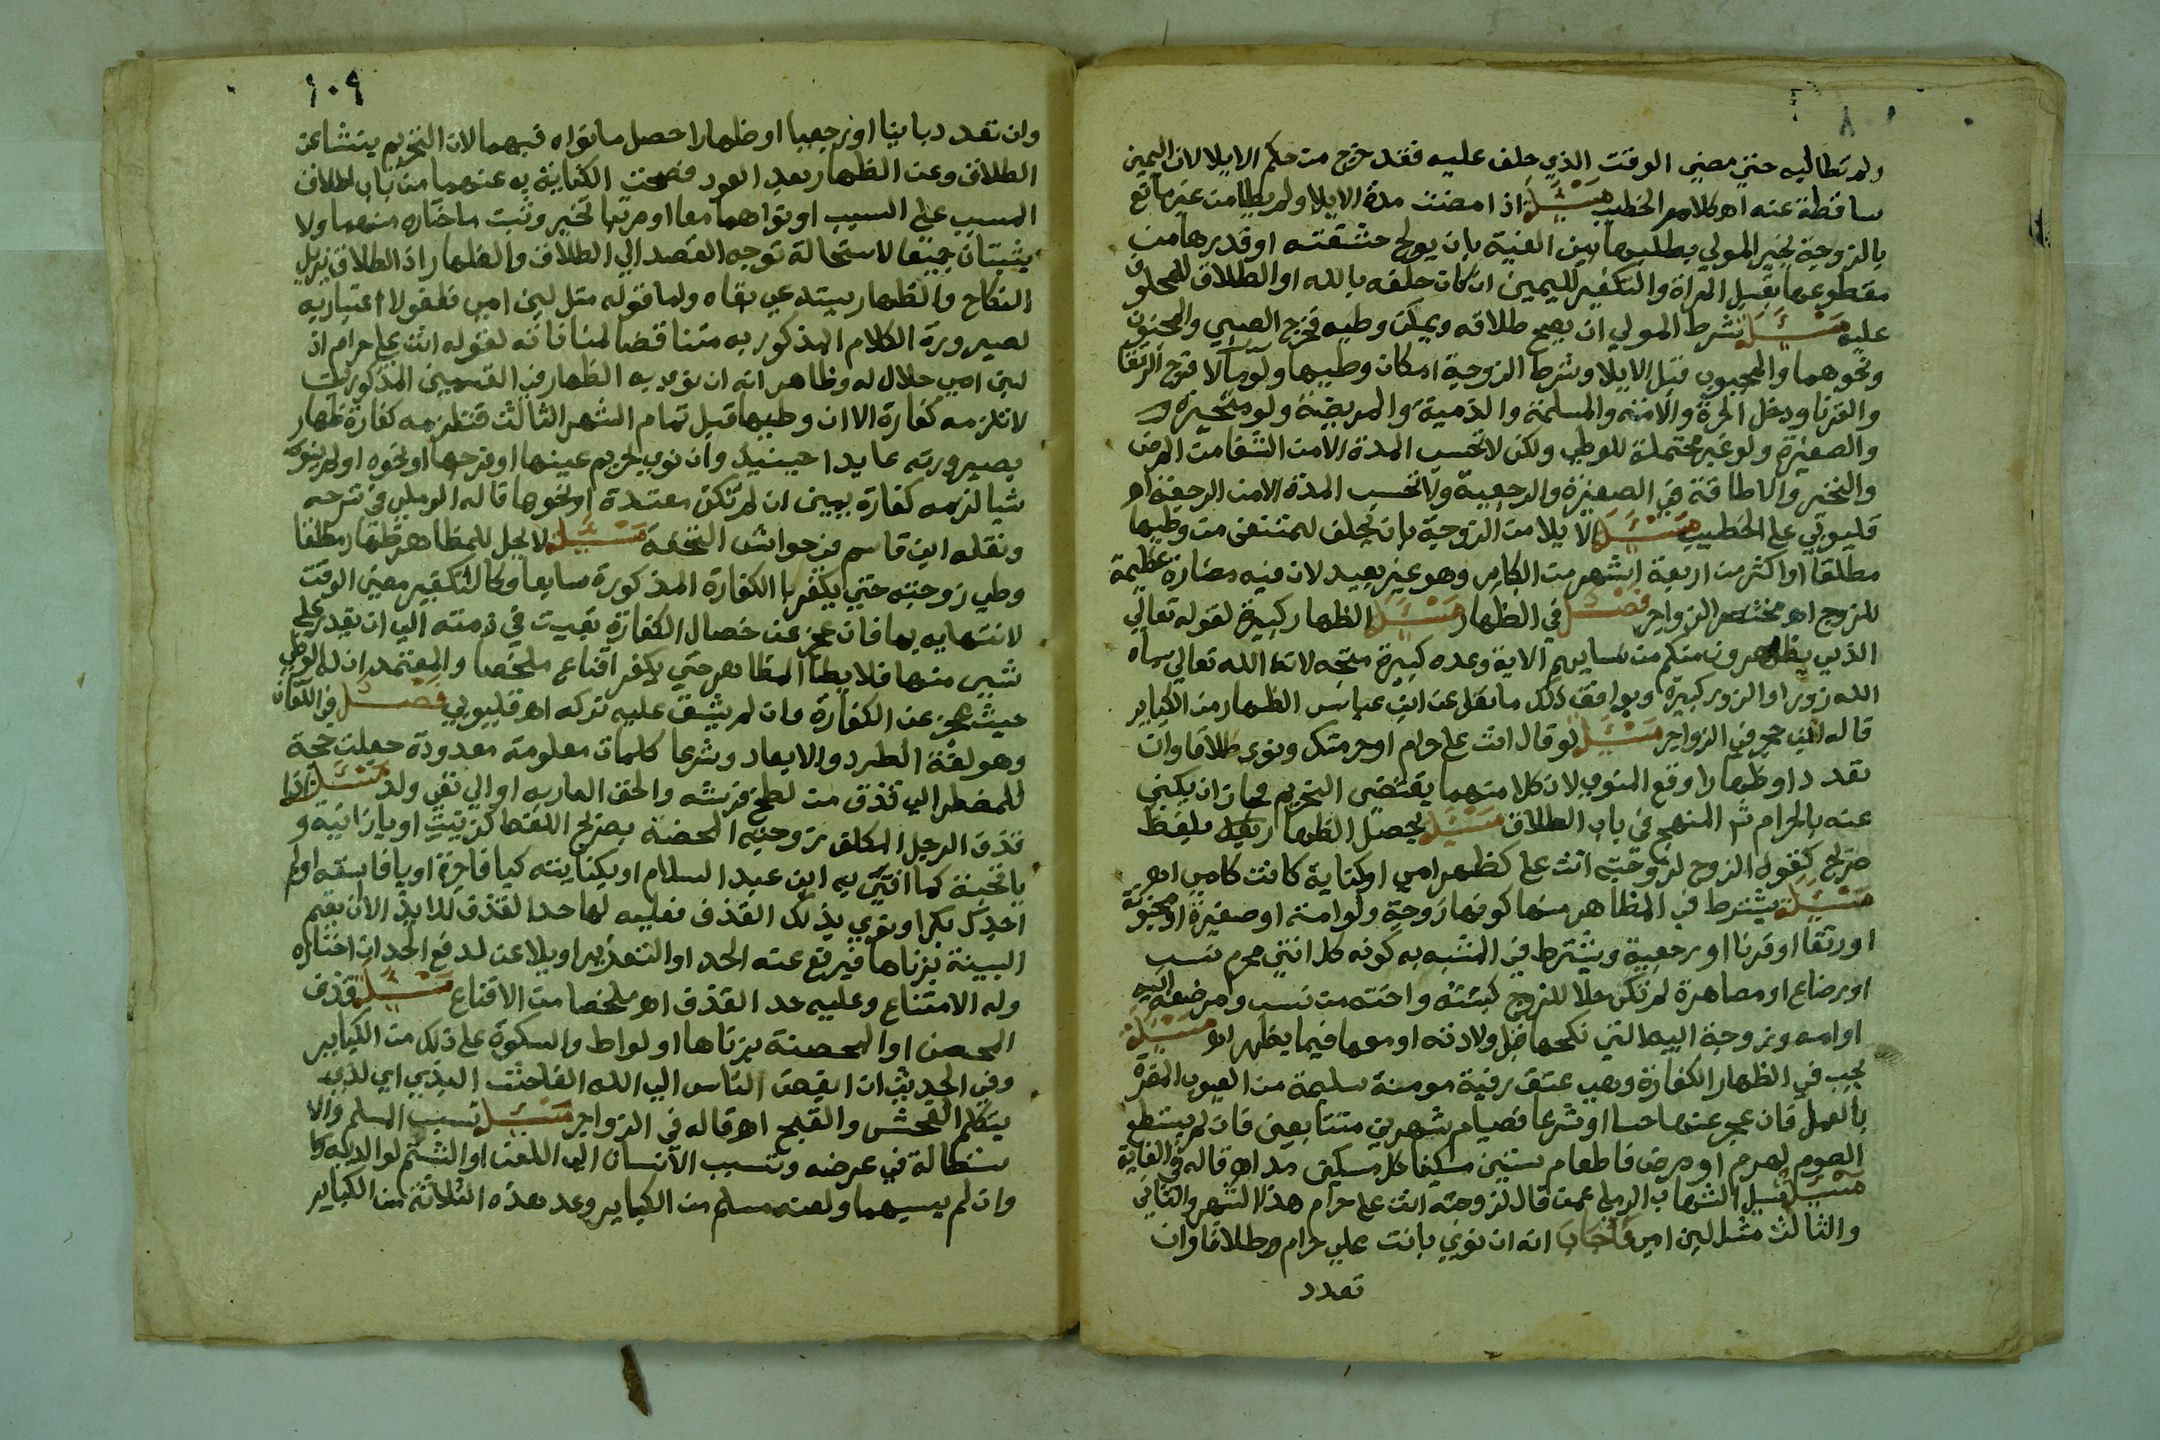 ولم تطالبه حتي مضي الوقت الذي حلف عليه فقد خرج من حكم الايلا لان اليمين
ساقطة عنه اه كلام الخطيب مسئلة اذا مضت مدة الايلا ولم يطا من غير مانع
بالزوجة يخير المولي بطلبها بين الفيئة بان يولج حشفته او قدرها من
مقطوعها بقبل المراة والتكفير لليمين ان كان حلفه بالله او الطلاق للمحلوف
عليه مسئلة شرط المولي ان يصح طلاقه ويمكن وطيه فخرج الصبي والمجنون
ونحوهما والمجبوب قبل الايلا وشرط الزوجية امكان وطيها ولو مآلا فتخرج الرتقا
والقرنا ودخل الحرة والامة والمسلمة والذمية والمريضة ولو متحيرة
والصغيرة ولو غير محتملة للوطي ولكن لا تحسب المدة الا من الشفا من المرض
والتخير والاطاقة في الصغيرة والرجعية ولا تحسب المدة الا من الرجعة اه
قليوبي علي الخطيب مسئلة الايلا من الزوجة بان يحلف ليمتنعن من وطيها
مطلقا او اكثر من اربعة اشهر من الكباير وهو غير بعيد لان فيه مضارة عظيمة
للزوج اه مختصر الزواجر فصل في الظهار مسئلة الظهار كبيرة لقوله تعالي
الذين يظاهرون منكم من نسايهم الاية وعده كبيرة متجه لان الله تعالي سماه
الله زورا والزور كبيرة ويوافق ذلك ما نقل عن ابن عباس الظهار من الكباير
قاله ابن حجر في الزواجر مسئلة لو قال انت علي حرام او حرمتك ونوي طلاقا وان
تعدد او ظهارا وقع المنوي لان كلا منهما يقتضي التحريم فجاز ان يكني
عنه بالحرام شم المنهج في باب الطلاق مسئلة يحصل الظهار بلفظ
صريح كقول الزوج لزوجته انت علي كظهر امي او كناية كانت كامي اه
مسئلة يشترط في المظاهر منها كونها زوجة ولو امة او صغيرة او مجنونة
او رتقا او قرنا او رجعية ويشترط في المشبه به كونه كل انثي محرم نسب
او رضاع او مصاهرة لم تكن حلا للزوج كبنته واخته من نسب ومرضعة ابيه
او امه وزوجة ابيه التي نكحها قبل ولادته او معها فيما يظهر اه مسئلة
يجب في الظهار الكفارة وهي عتق رقبة مومنة سليمة من العيوب المضرة
بالعمل فان عجز عنها حسا او شرعا فصيام شهرين متتابعين فان لم يستطع
الصوم لهرم او مرض فاطعام ستين مسكينا كل مسكين مد اه قاله في الغاية
مسئلة سيل الشهاب الرملي عمن قال لزوجته انت علي حرام هذا الشهر والثاني
والثالث مثل لبن امي فأجاب انه ان نوي بانت علي حرام طلاقا وان
تعدد
١٠٩
وان تعدد باينا او رجعيا او ظهارا حصل ما نواه فيهما لان التحريم ينشا عن
الطلاق وعن الظهار بعد العود فصحت الكناية به عنهما من باب اطلاق
المسبب علي السبب او نواهما معا او مرتبا تخير وثبت ما اختاره منهما ولا
يثبتان جميعا لاستحالة توجه القصد الي الطلاق والظهار اذ الطلاق يزيل
النكاح والظهار يستدعي بقاه ولما قوله مثل لبن امي فلغو لا اعتبار به
لصيرورة الكلام المذكور به متناقضا لمنافاته لقوله انت علي حرام اذ
لبن امي حلال له وظاهر انه ان نوي به الظهار في القسمين المذكورين
لا تلزمه كفارة الا ان وطيها قبل تمام الشهر الثالث فتلزمه كفارة ظهار
بصيرورته عايدا حينيذ وان نوي تحريم عينها او فرجها او نحوه او لم ينو
شيا لزمه كفارة يمين ان لم تكن معتدة او نحوها قاله الرملي في شرحه
ونقله ابن قاسم في حواشي التحفة مسئلة لا يحل للمظاهر ظهارا مطلقا
وطي زوجته حتي يكفر بالكفارة المذكورة سابقا وكالتكفير مضي الوقت
لانتهايه بها فان عجز عن خصال الكفارة بقيت في ذمته الي ان يقدر علي
شيي منها فلا يطا المظاهر حتي يكفر اقناع ملخصا والمعتمد ان له الوطي
حيث عجز عن الكفارة وان لم يشق عليه تركه اه قليوبي فصل في اللعان
وهو لغة الطرد والابعاد وشرعا كلمات معلومة معدودة جعلت حجة
للمضطر الي قذف من لطخ فرشه والحق العار به او الي نفي ولد مسئلة اذا
قذف الرجل المكلف زوجته المحصنة بصريح اللفظ كزنيت او يا زانية و
يا قحبة كما افتي به ابن عبد السلام او بكنايته كيا فاجرة او يا فاسقة او لم
اجدك بكرا ونوي بذلك القذف فعليه لها حد القذف للايذا الا ان يقيم
البينة بزناها فيرتفع عنه الحد او التعزير او يلاعن لدفع الحد ان اختاره
وله الامتناع وعليه حد القذف اه ملخصا من الاقناع مسئلة قذف
المحصن او المحصنة بزناها او لواط والسكوت علي ذلك من الكباير
وفي الحديث ان ابغض الناس الي الله الفاحش البذي اي الذي
يتكلم بالفحش والقبح اه قاله في الزواجر مسئلة سب المسلم والا
ستطالة في عرضه وتسبب الانسان الي اللعن او الشتم لوالديه
وان لم يسبهما ولعنه مسلم من الكباير وعد هذه الثلاثة من الكباير